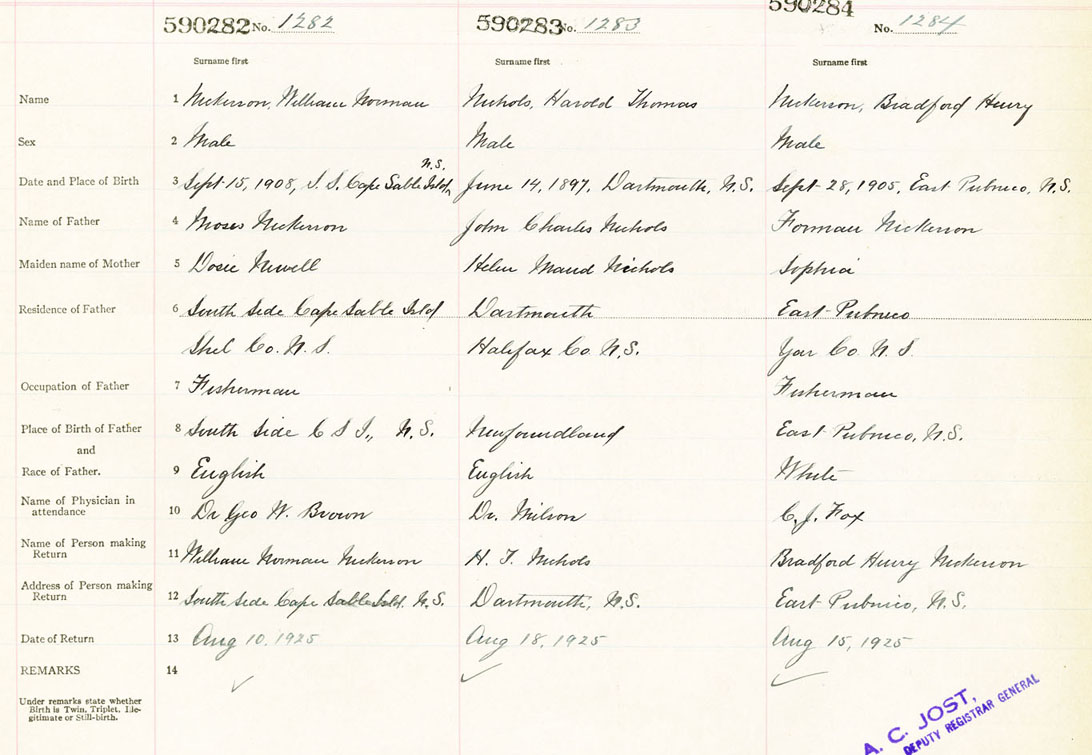 590282 No. 1282 590283 No. 1283 590284 No. 1284
Surname first Surname first Surname first
Name 1 Nickerson, William Norman Nichols, Harold Thomas Nickerson, Bradford Henry
Sex 2 Male Male Male
N.S.
Date and Place of Birth 3 Sept 15, 1908, S. S. Cape Sable Isld, June 14, 1897, Dartmouth, N.S. Sept 28, 1905, East Pubnico, N.S.
Name of Father 4 Moses Nickerson John Charles Nichols Forman Nickerson
Maiden name of Mother 5 Dosie Newell Helen Maud Nichols Sophia
Residence of Father 6 South Side Cape Sable Isld Dartmouth East Pubnico
Shel Co. N.S. Halifax Co N.S. Yar Co N.S.
Occupation of Father 7 Fisherman Fisherman
Place of Birth of Father 8 South Side C S I., N.S. Newfoundland East Pubnico, N.S.
and
Race of Father. 9 English English White
Name of Physician in
attendance 10 Dr Geo W. Brown Dr. Milson C. J. Fox
Name of Person making
Return 11 William Norman Nickerson H. T. Nichols Bradford Henry Nickerson
Address of Person making
Return 12 South Side Cape Sable Isld. N.S. Dartmouth, N.S. East Pubnico, N.S.
Date of Return 13 Aug 10, 1925 Aug 18, 1925 Aug 15, 1925
REMARKS 14
Under remarks state whether
Birth is Twin, Triplet, Ille-
gitimate or Still-birth.
A. C. JOST,
DEPUTY REGISTRAR GENERAL